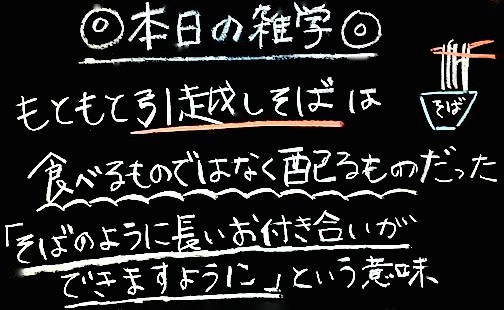 ◎本日の雑学◎
もともと引越しそばは
そば
食べるものではなく配るものだった
「そばのように長いお付き合いが
できますように」という意味